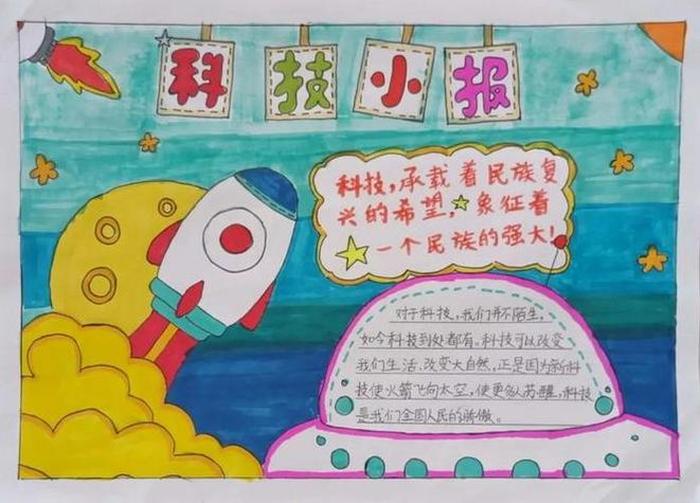 科技小报
科技,承载着民族复
兴的希望,象征着
一个民族的强大!
对于科技,我们并不陌生,
如今科技到处都有。科技可以改变
我们生活,改变大自然,正是因为新科
技使火箭飞向太空,使更多人苏醒,科技
是我们全国人民的骄傲。